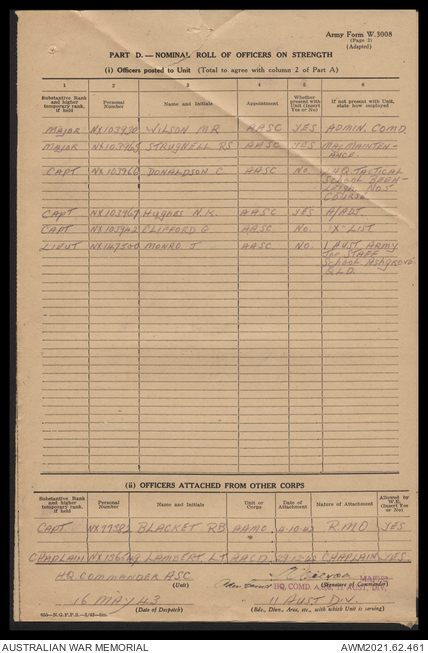 Army Form W.3008
(Page 2)
(Adapted)
PART D.—NOMINAL ROLL OF OFFICERS ON STRENGTH
(i) Officers posted to Unit (Total to agree with column 2 of Part A)
1 2 3 4 5 6
Substantive Rank and higher temporary rank, if held Personal Number Name and Initials Appointment Whether present with Unit (Insert Yes or No) If not present with Unit, state how employed
MAJOR NX103930 WILSON M R AASC YES ADMIN. COMD.
MAJOR STRUGNELL RS AASC YES MAJ. MAINTEN-
ANCE.
CAPT NX103960 DONALDSON C AASC NO. LHQ. TACTICAL
SCHOOL BEEN-
LEIGH NO.5
COURSE
CAPT NX103967 Hughes N.K. AASC YES A/ADJ.
CAPT NX103942 CLIFFORD G AASC NO. "X" LIST
LIEUT NX147300 MONRO J AASC NO. 1 AUST ARMY
Jnr STAFF
School Ashgrove
QLD.
(ii) OFFICERS ATTACHED FROM OTHER CORPS
Substantive Rank and higher temporary rank, if held Personal Number Name and Initials Unit or Corps Date of Attachment Nature of Attachment Allowed by W.E. (Insert Yes or No)
CAPT BLACKET RB AAMC -10-42 RMO YES
CHAPLAIN LAMBERT. LT CHAPLAIN YES
HQ COMMANDER ASC MAJOR
(Unit) HQ. COMD. A.S.C. 11 AUST. DIV. (Signature of Commander)
16 MAY 43 11 AUST DIV.
(Date of Despatch) (Bde., Divn., Area, etc., with which Unit is serving)
AUSTRALIAN WAR MEMORIAL AWM2021.62.461